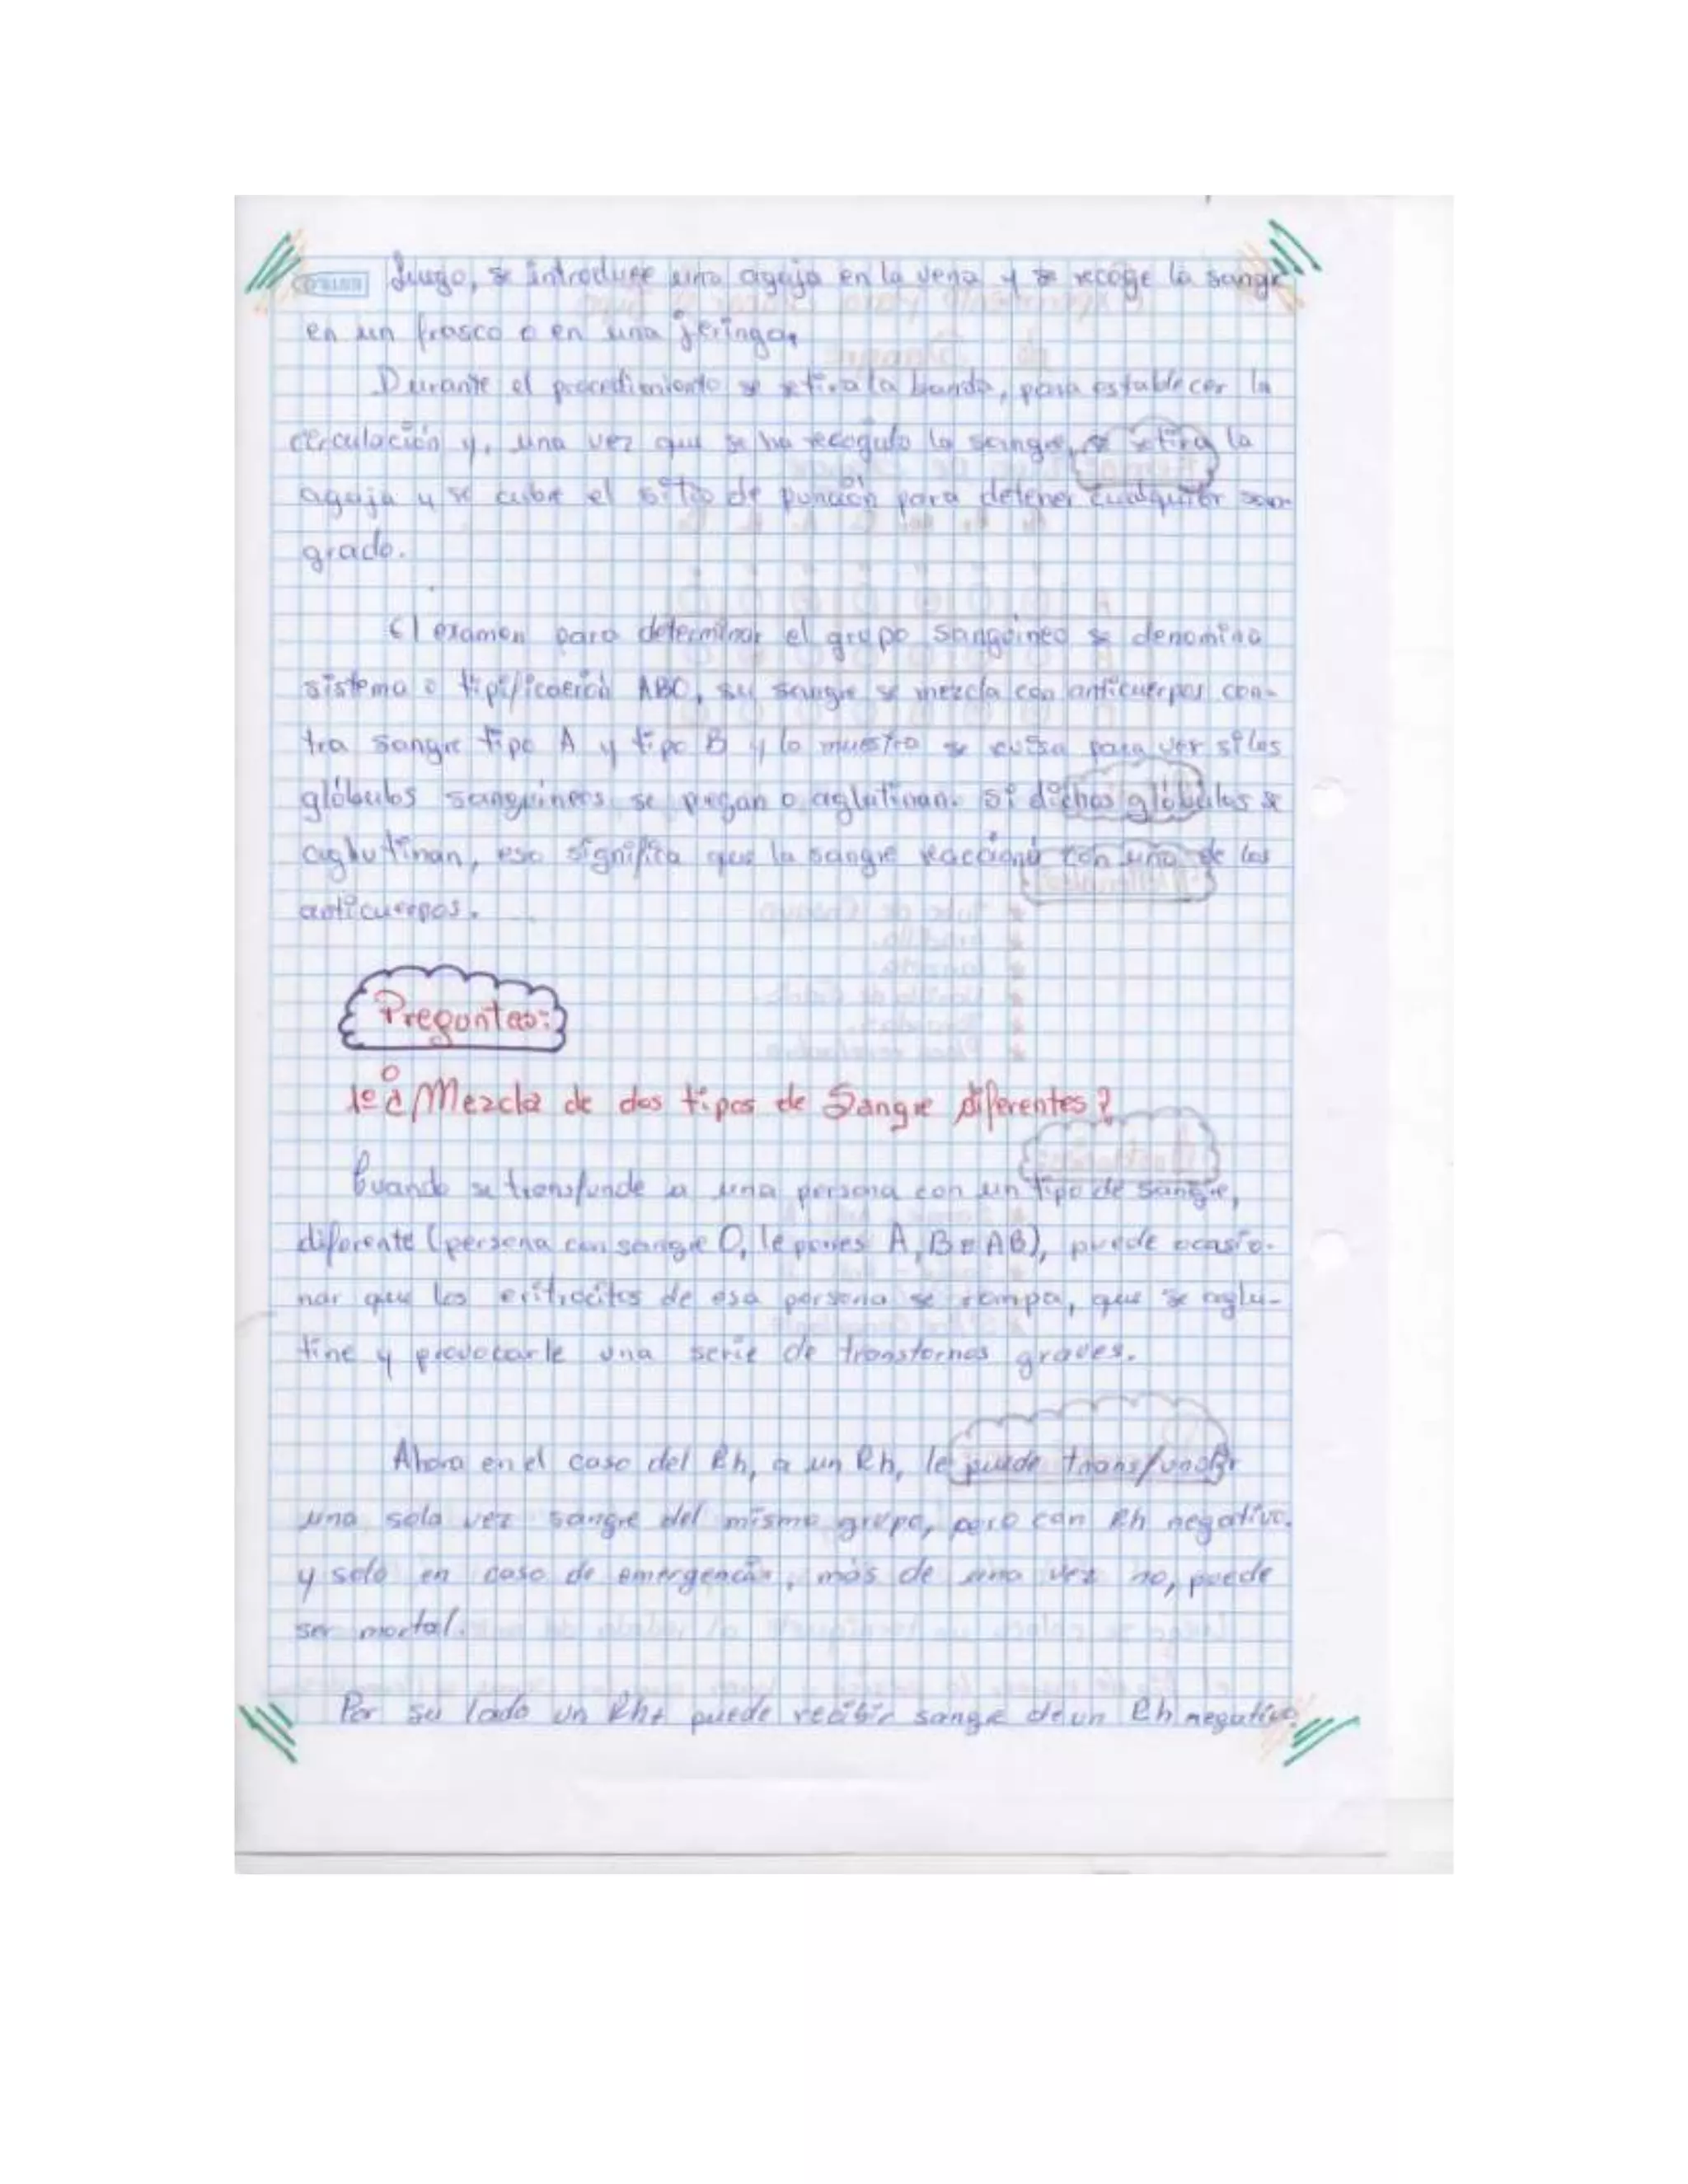 Luego, se introduce una aguja en la vena y se recoge la sangre
en un frasco o en una jeringa.
Durante el procedimiento se retira la banda, para establecer la
circulación y, una vez que se ha recogido la sangre, se retira la
aguja y se cubre el sitio de punción para detener cualquier san-
grado.
El examen para determinar el grupo sanguíneo se denomina
sistema o tipificación ABO, su sangre se mezcla con anticuerpos con-
tra sangre tipo A y tipo B y la muestra se revisa para ver si los
glóbulos sanguíneos se pegan o aglutinan. Si dichos glóbulos se
aglutinan, eso significa que la sangre reaccionó con uno de los
anticuerpos.
Preguntas:
1º ¿Mezcla de dos tipos de Sangre diferentes?
Cuando se transfunde a una persona con un tipo de sangre,
diferente (persona con sangre O, le pones A, B o AB), puede ocasio-
nar que los eritrocitos de esa persona se rompa, que se aglu-
tine y provocarle una serie de transtornos graves.
Ahora en el caso del Rh, a un Rh, le puede transfundir
una sola vez sangre del mismo grupo, pero con Rh negativo.
y solo en caso de emergencia, más de una vez no, puede
ser mortal.
Por su lado un Rh+ puede recibir sangre de un Rh negativo.